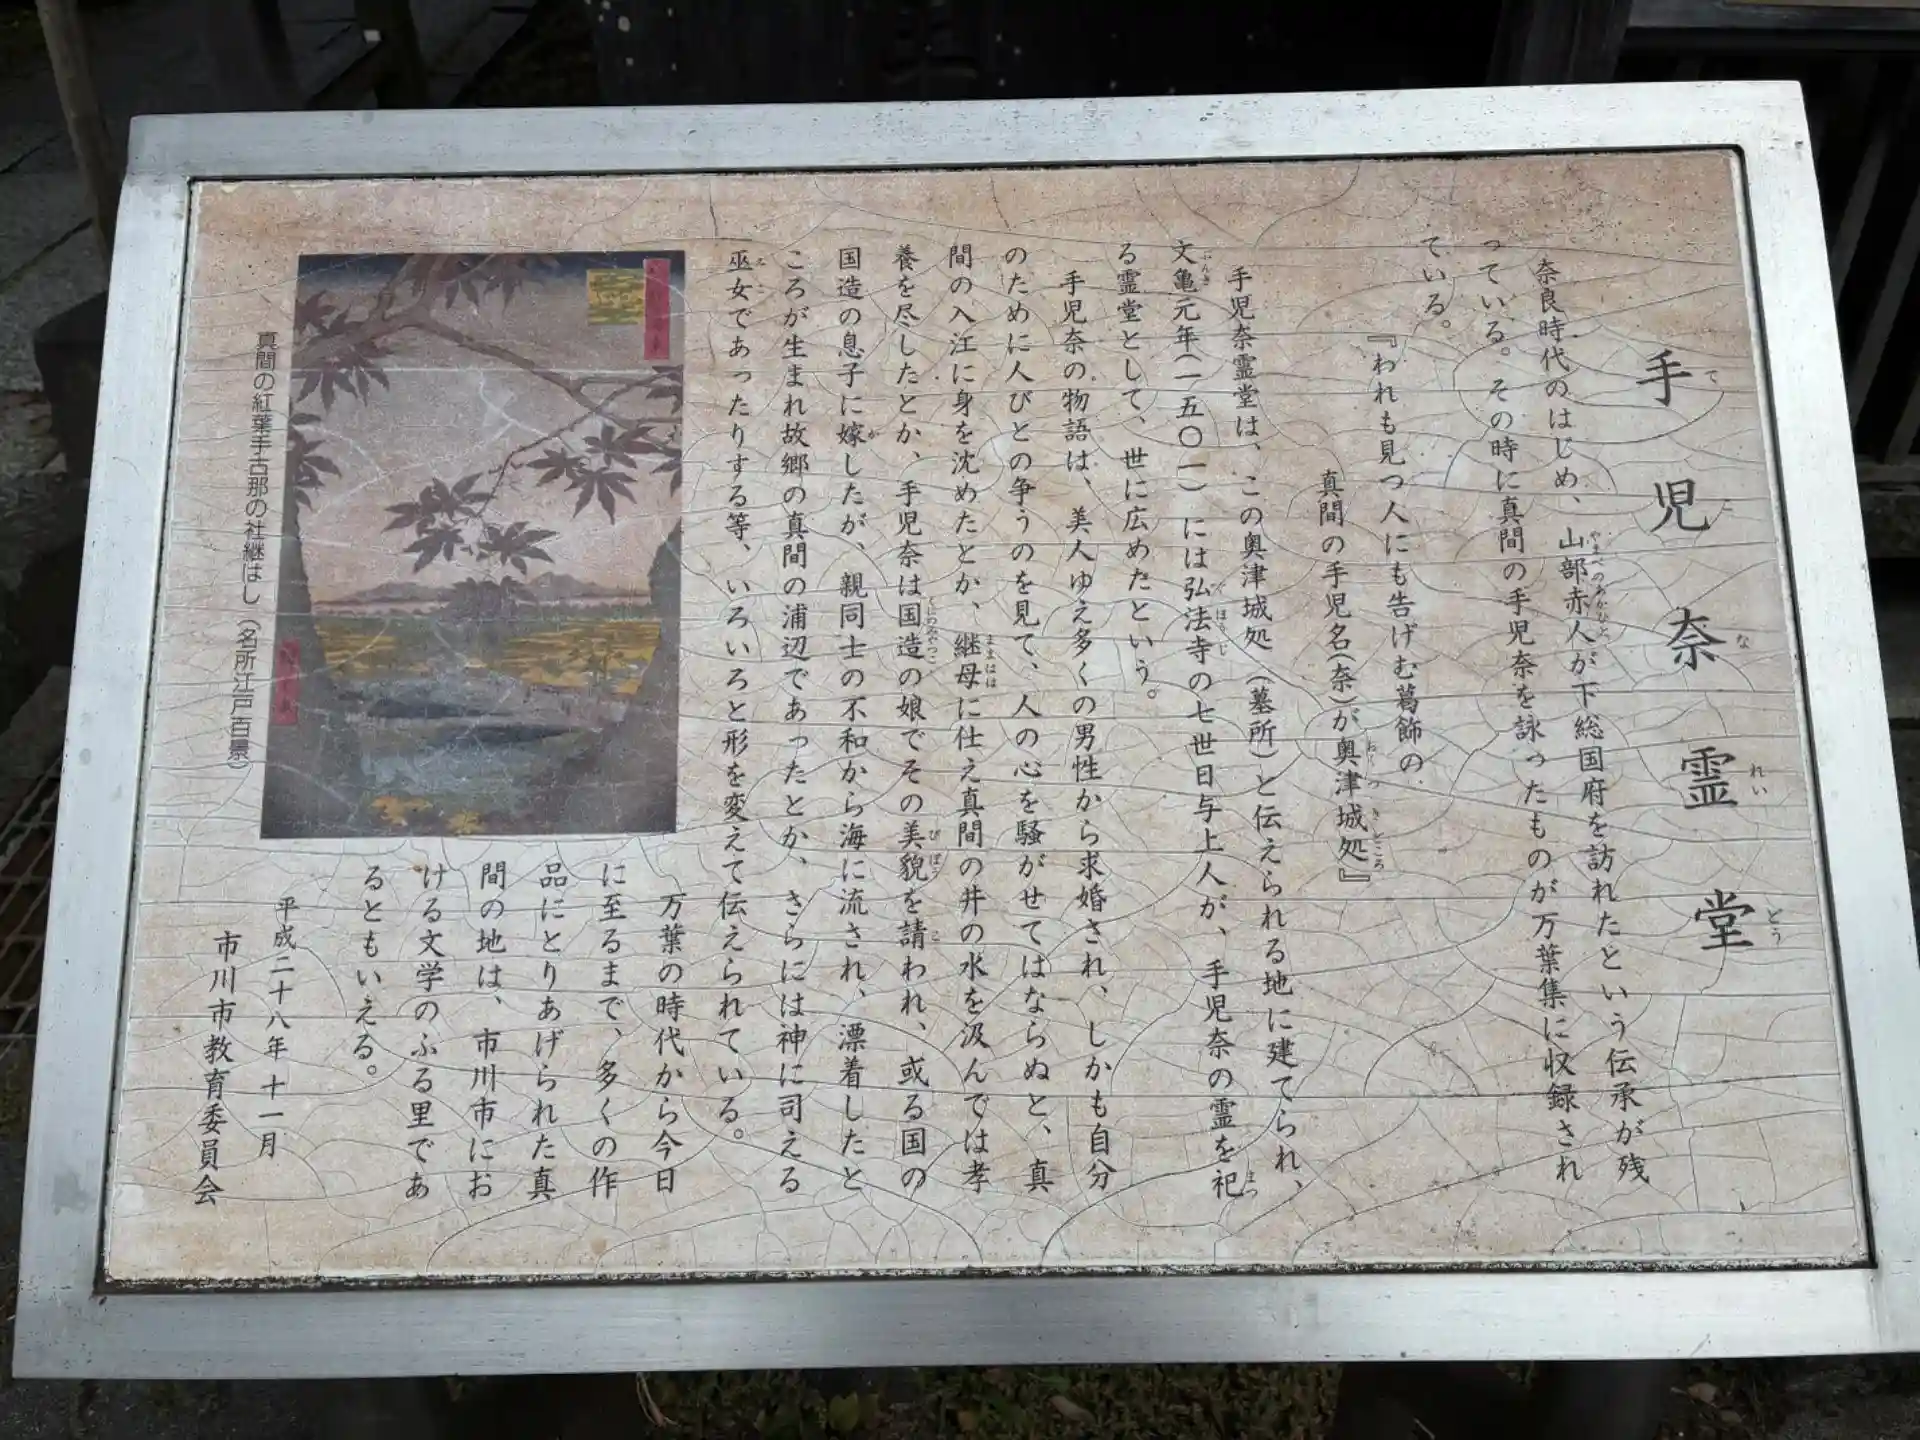 手児奈霊堂
奈良時代のはじめ、山部赤人が下総国府を訪れたという伝承が残
っている。その時に真間の手児奈を詠ったものが万葉集に収録され
ている。
『われも見つ人にも告げむ葛飾の
真間の手児名(奈)が奥津城処』
手児奈霊堂は、この奥津城処(墓所)と伝えられる地に建てられ、
文亀元年(一五〇一)には弘法寺の七世日与上人が、手児奈の霊を祀
る霊堂として、世に広めたという。
手児奈の物語は、美人ゆえ多くの男性から求婚され、しかも自分
のために人びとの争うのを見て、人の心を騒がせてはならぬと、真
間の入江に身を沈めたとか、継母に仕え真間の井の水を汲んでは孝
養を尽くしたとか、手児奈は国造の娘でその美貌を請われ、或る国の
国造の息子に嫁したが、親同士の不和から海に流され、漂着したと
ころが生まれ故郷の真間の浦辺であったとか、さらには神に司える
巫女であったりする等、いろいろと形を変えて伝えられている。
万葉の時代から今日
に至るまで、多くの作
品にとりあげられた真
間の地は、市川市にお
ける文学のふる里であ
るともいえる。
平成二十八年十一月
市川市教育委員会
真間の紅葉手古那の社継はし(名所江戸百景)